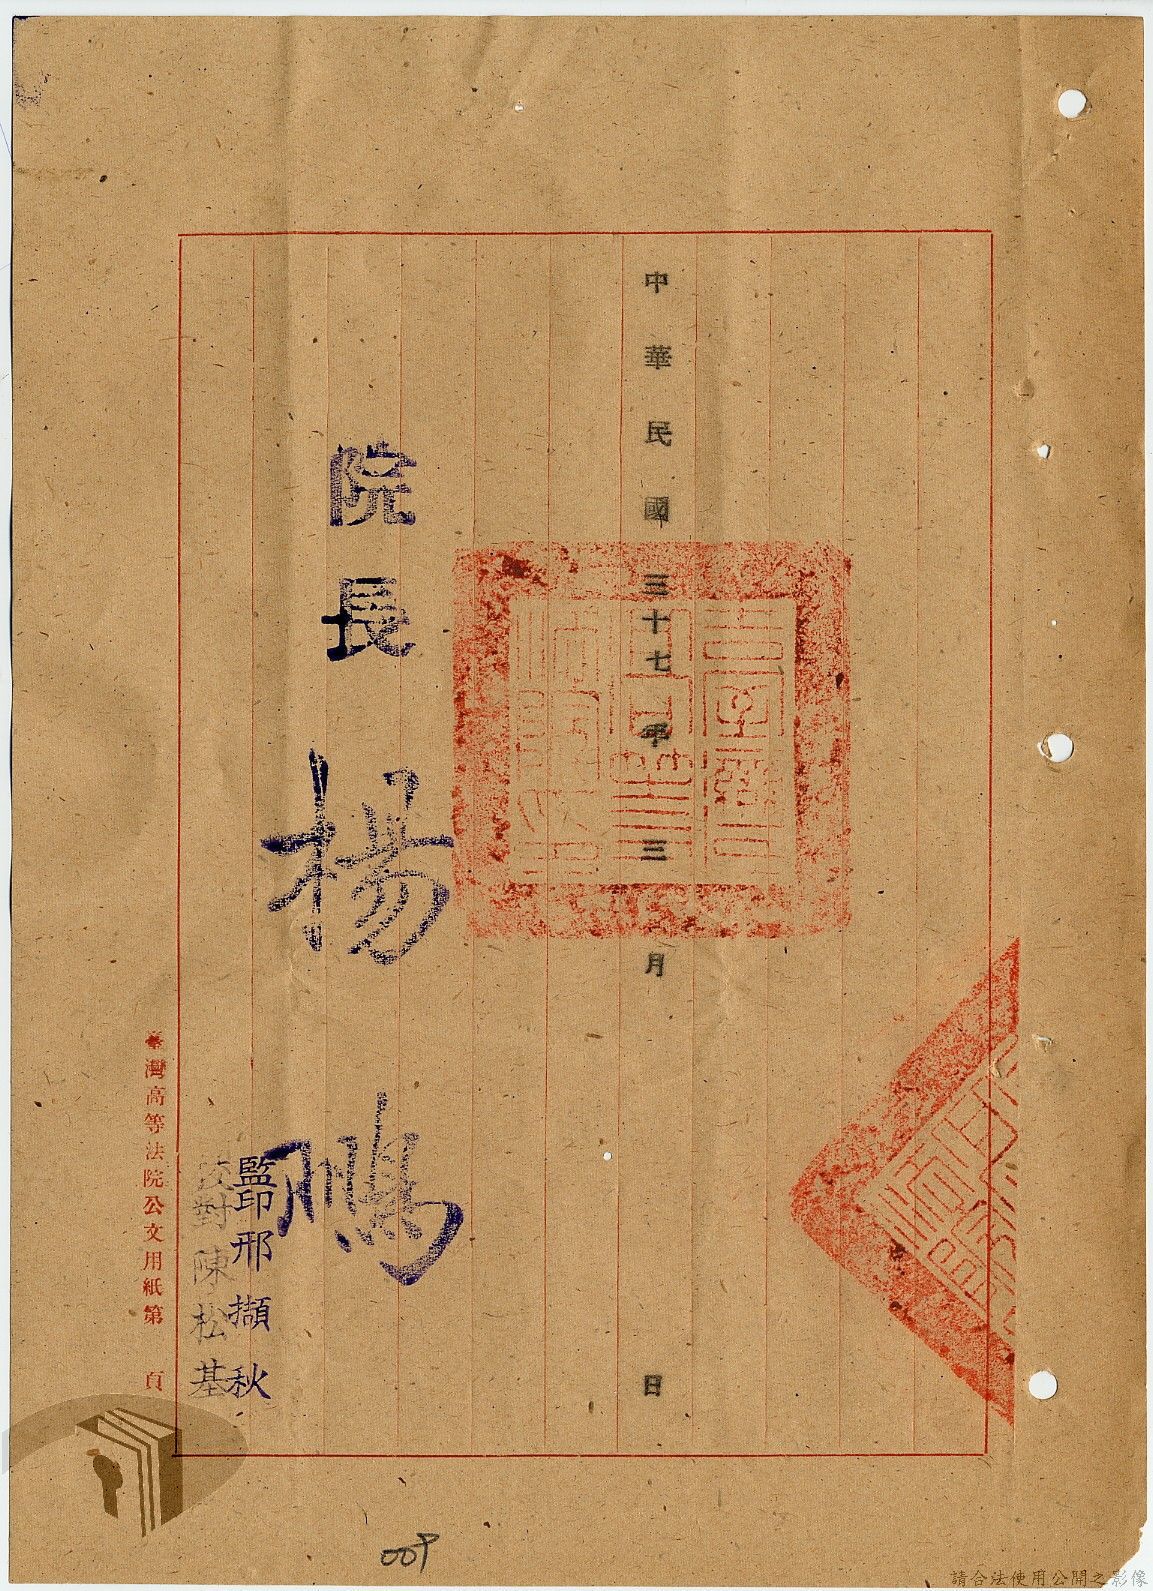 中華民國三十七年三月 日
院長楊鵬
監印邢擷秋
校對陳松基
臺灣高等法院公文用紙第 頁
009
請合法使用公開之影像